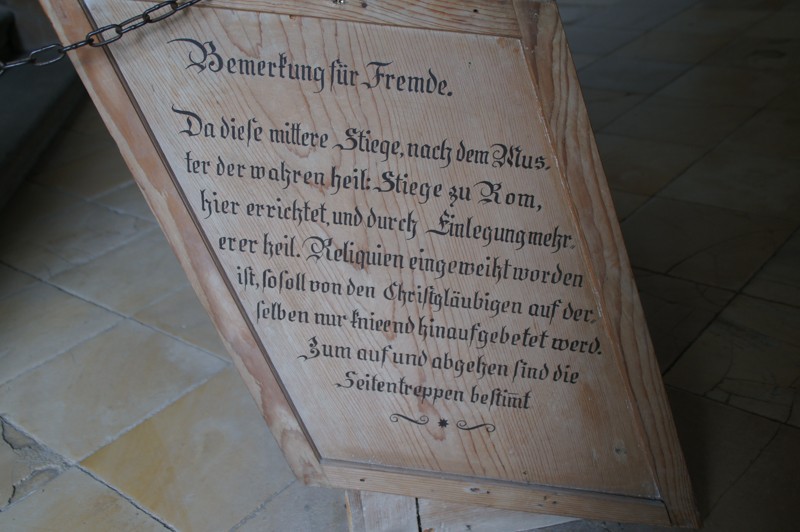 Bemerkung für Fremde.
Da dieſe mittere Stiege, nach dem Mus-
ter der wahren heil: Stiege zu Rom,
hier errichtet, und durch Einlegung mehr-
erer heil. Reliquien eingeweiht worden
iſt, ſo ſoll von den Chriſtgläubigen auf der-
ſelben nur knieend hinaufgebetet werd.
Zum auf und abgehen ſind die
Seitentreppen beſtim̅t